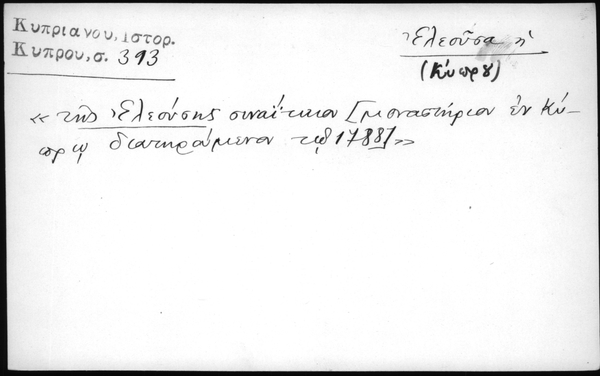 Κυπριανου, Ιστορ.
Κυπρου, σ. 393
Ἐλεοῦσα ἡ
(Κύπρου)
« τῆς Ἐλεούσης σιναΐτικον [μοναστήριον ἐν Κύ-
πρῳ διατηρούμενον τῷ 1788] »